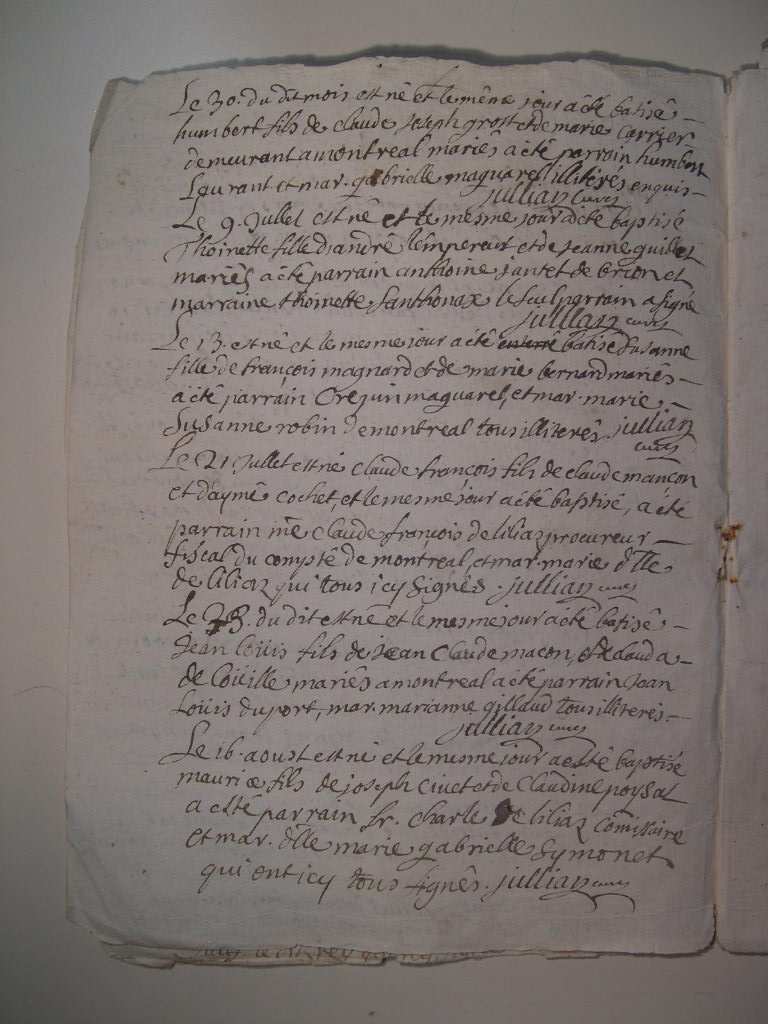 Le 30. du dit mois est né et le même jour a êté batisé
humbert fils de claude joseph grost et de marie carrier
demeurant a montreal mariés a été parrain humbert
Laurant et mar. gabrielle maguarel illiterés enquis
jullian curé
Le 9. Jullet est né et le mesme jour a été baptisé
Thoinette fille d'andré l'empereur et de jeanne guillet
mariés a êté parrain anthoine jantet de brion et
marraine thoinette santhonax le seul parrain a signé
jullian curé
Le 13. est né et le mesme jour a êté batisé susanne
fille de françois magnard et de marie bernard mariés
a été parrain Crequin maguarel, et mar. marie
Susanne robin de montreal tous illiterés jullian
curé
Le 21 jullet est né claude françois fils de claude mancon
et d'aymé cochet, et le mesme jour a êté baptisé, a été
parrain me claude françois de liliaz procureur
fiscal du compté de montreal, et mar. marie dlle
de liliaz qui tous icy signés. jullian curé
Le du dit est né et le mesme jour a êté batisé
jean loüis fils de jean claude macon, et de clauda
de loüille mariés a montreal a été parrain jean
Loüis duport, mar. marianne gillaud tous illiterés
jullian curé
Le 16. aoust est né et le mesme jour a esté baptisé
maurice fils de joseph civet et de claudine poysat
a esté parrain sr. charle de liliaz commissaire
et mar. dlle marie gabrielle symonet
qui ont icy tous signés. jullian curé